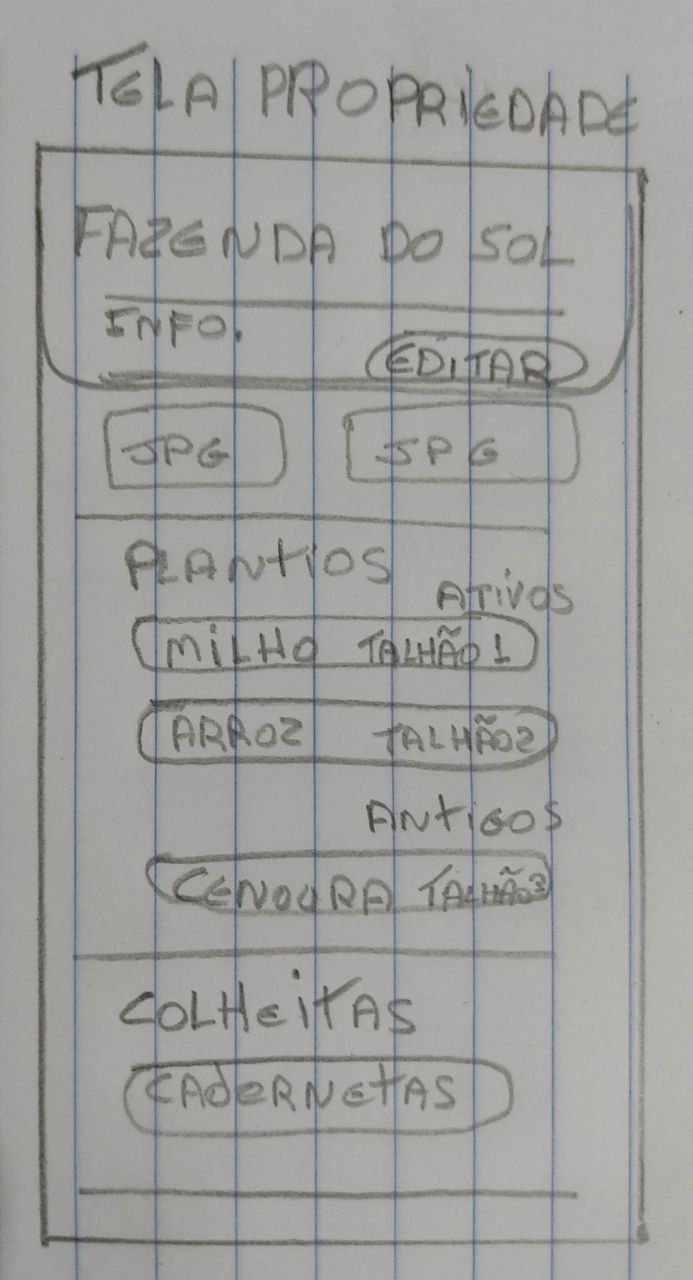 TELA PROPRIEDADE
FAZENDA DO SOL
INFO.
EDITAR
JPG JPG
PLANTIOS
ATIVOS
MILHO TALHÃO 1
ARROZ TALHÃO 2
ANTIGOS
CENOURA TALHÃO 3
COLHEITAS
CADERNETAS